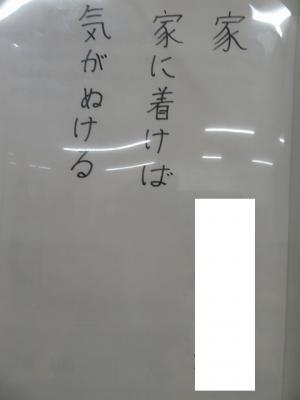 家
家に着けば
気がぬける